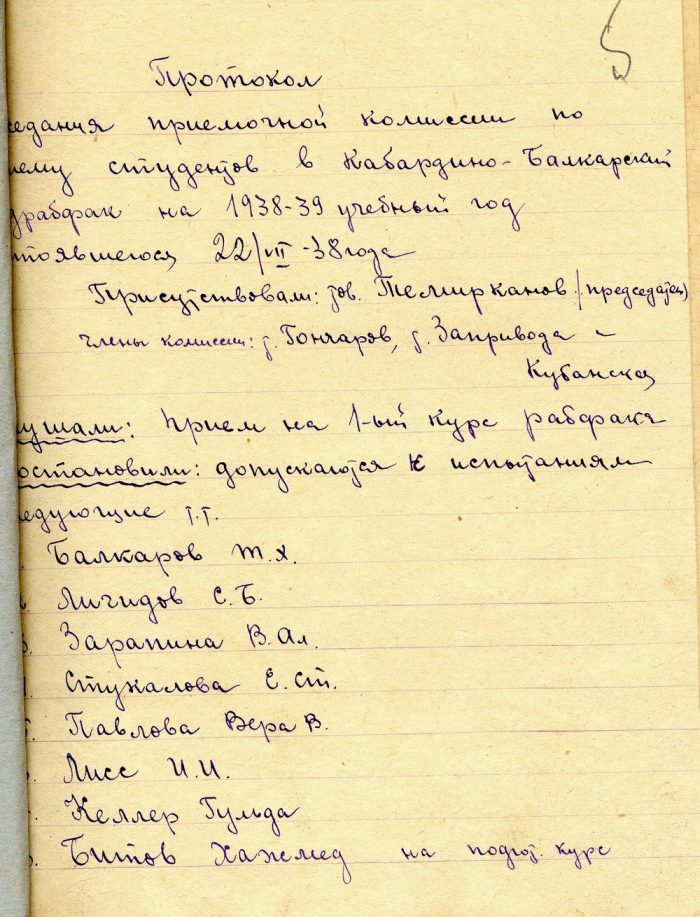 5
Протокол
седания приемочной комиссии по
иему студентов в Кабардино-Балкарский
драбфак на 1938-39 учебный год
тоявшегося 22/VII-38 года
Присутствовали: тов. Темирканов (председатель)
члены комиссии: т. Гончаров, т. Запривода –
Кубанская
ушали: Прием на 1-ый курс рабфака
остановили: допускаются к испытаниям
едующие т.т.
Балкаров Т.Х.
Личидов С.Б.
Зарапина В.Ал.
Стукалова Е.Ст.
Павлова Вера В.
Лисс И.И.
Келлер Гульда
Битов Хажмед на подгот. курс